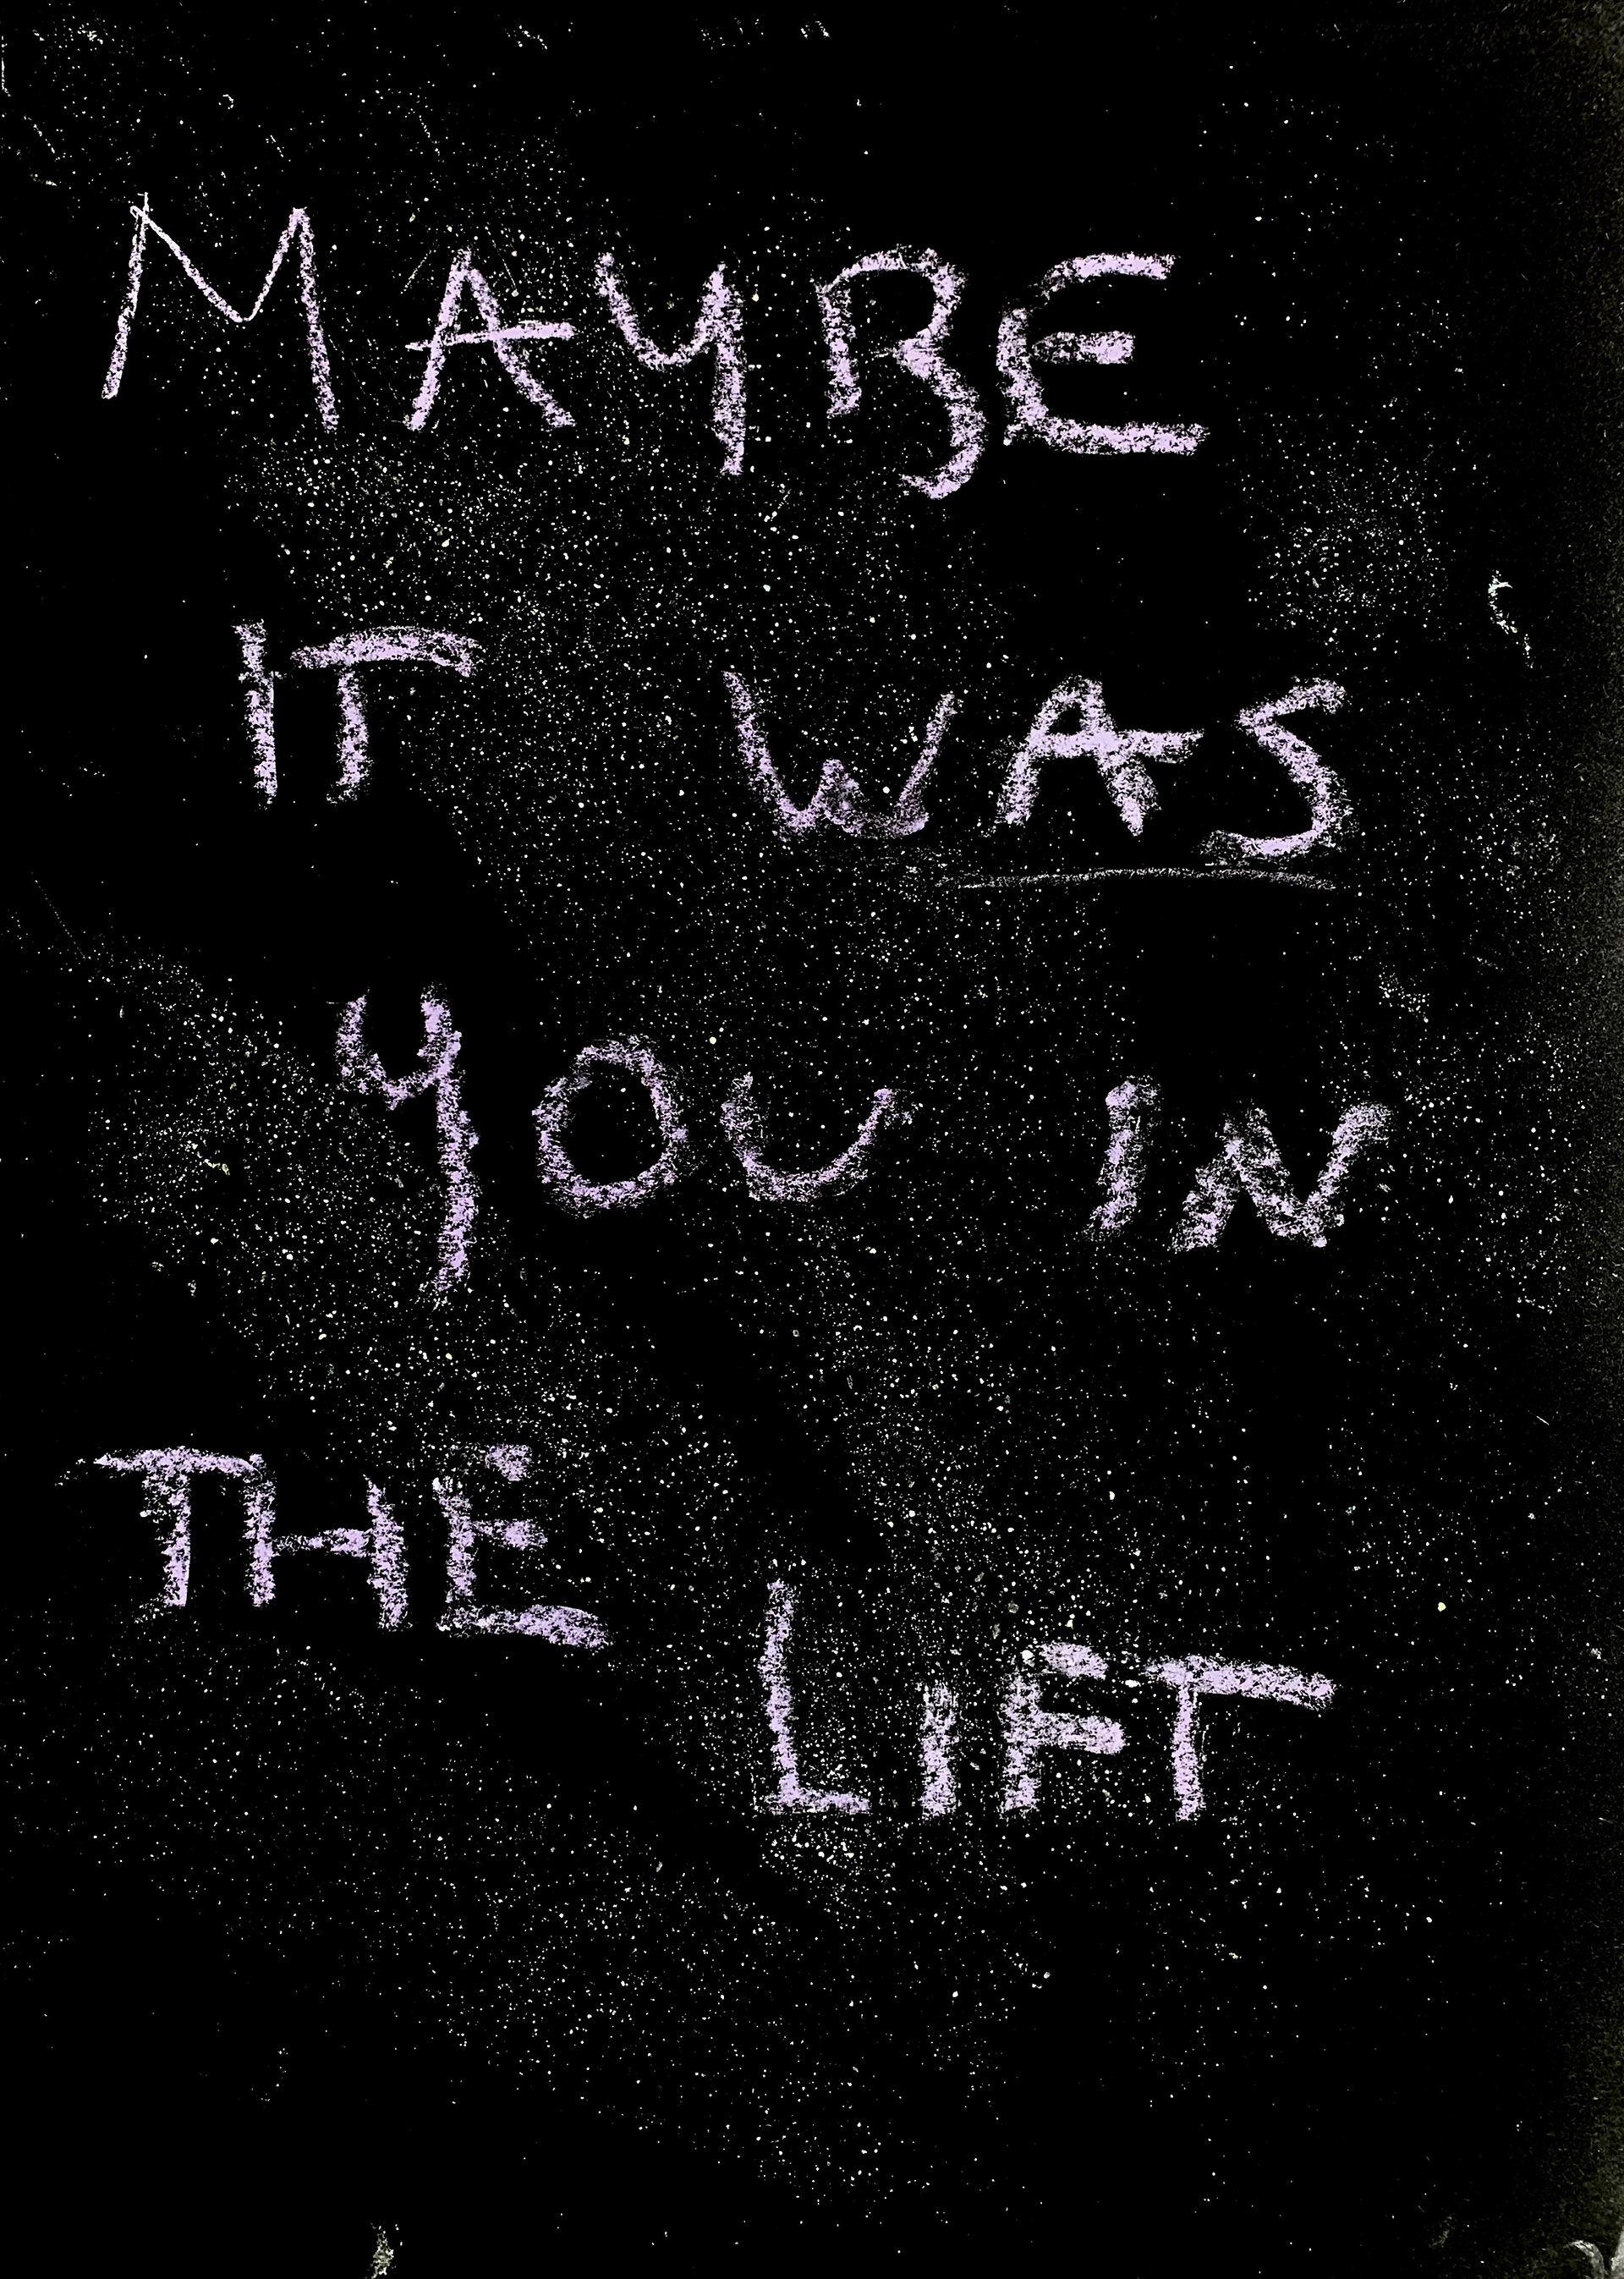 MAYBE
IT WAS
YOU IN
THE
LIFT